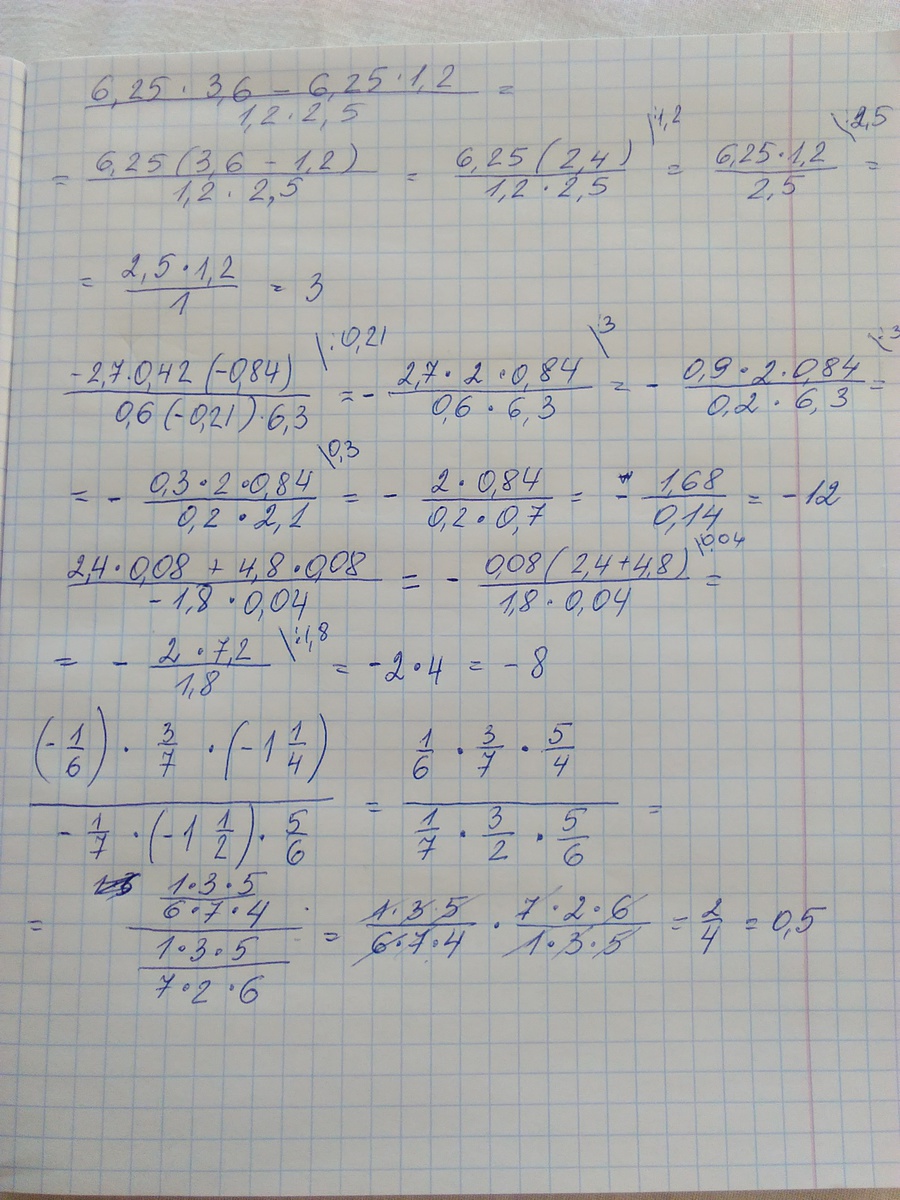 (6,25 · 3,6 - 6,25 · 1,2) / (1,2 · 2,5) =
= 6,25(3,6 - 1,2) / (1,2 · 2,5) = 6,25(2,4) / (1,2 · 2,5) \:1,2 = 6,25 · 1,2 / 2,5 \:2,5 =
= 2,5 · 1,2 / 1 = 3
-2,7 · 0,42 (-0,84) / (0,6 (-0,21) · 6,3) \:0,21 = - 2,7 · 2 · 0,84 / (0,6 · 6,3) \:3 = - 0,9 · 2 · 0,84 / (0,2 · 6,3) \:3 =
= - 0,3 · 2 · 0,84 / (0,2 · 2,1) \0,3 = - 2 · 0,84 / (0,2 · 0,7) = - 1,68 / 0,14 = -12
(2,4 · 0,08 + 4,8 · 0,08) / (-1,8 · 0,04) = - 0,08(2,4+4,8) / (1,8 · 0,04) \:0,04 =
= - 2 · 7,2 / 1,8 \:1,8 = -2 · 4 = -8
((-1/6) · 3/7 · (-1 1/4)) / (-1/7 · (-1 1/2) · 5/6) = (1/6 · 3/7 · 5/4) / (1/7 · 3/2 · 5/6) =
= (1·3·5 / 6·7·4) / (1·3·5 / 7·2·6) = 1·3·5 / 6·7·4 · 7·2·6 / 1·3·5 = 2/4 = 0,5